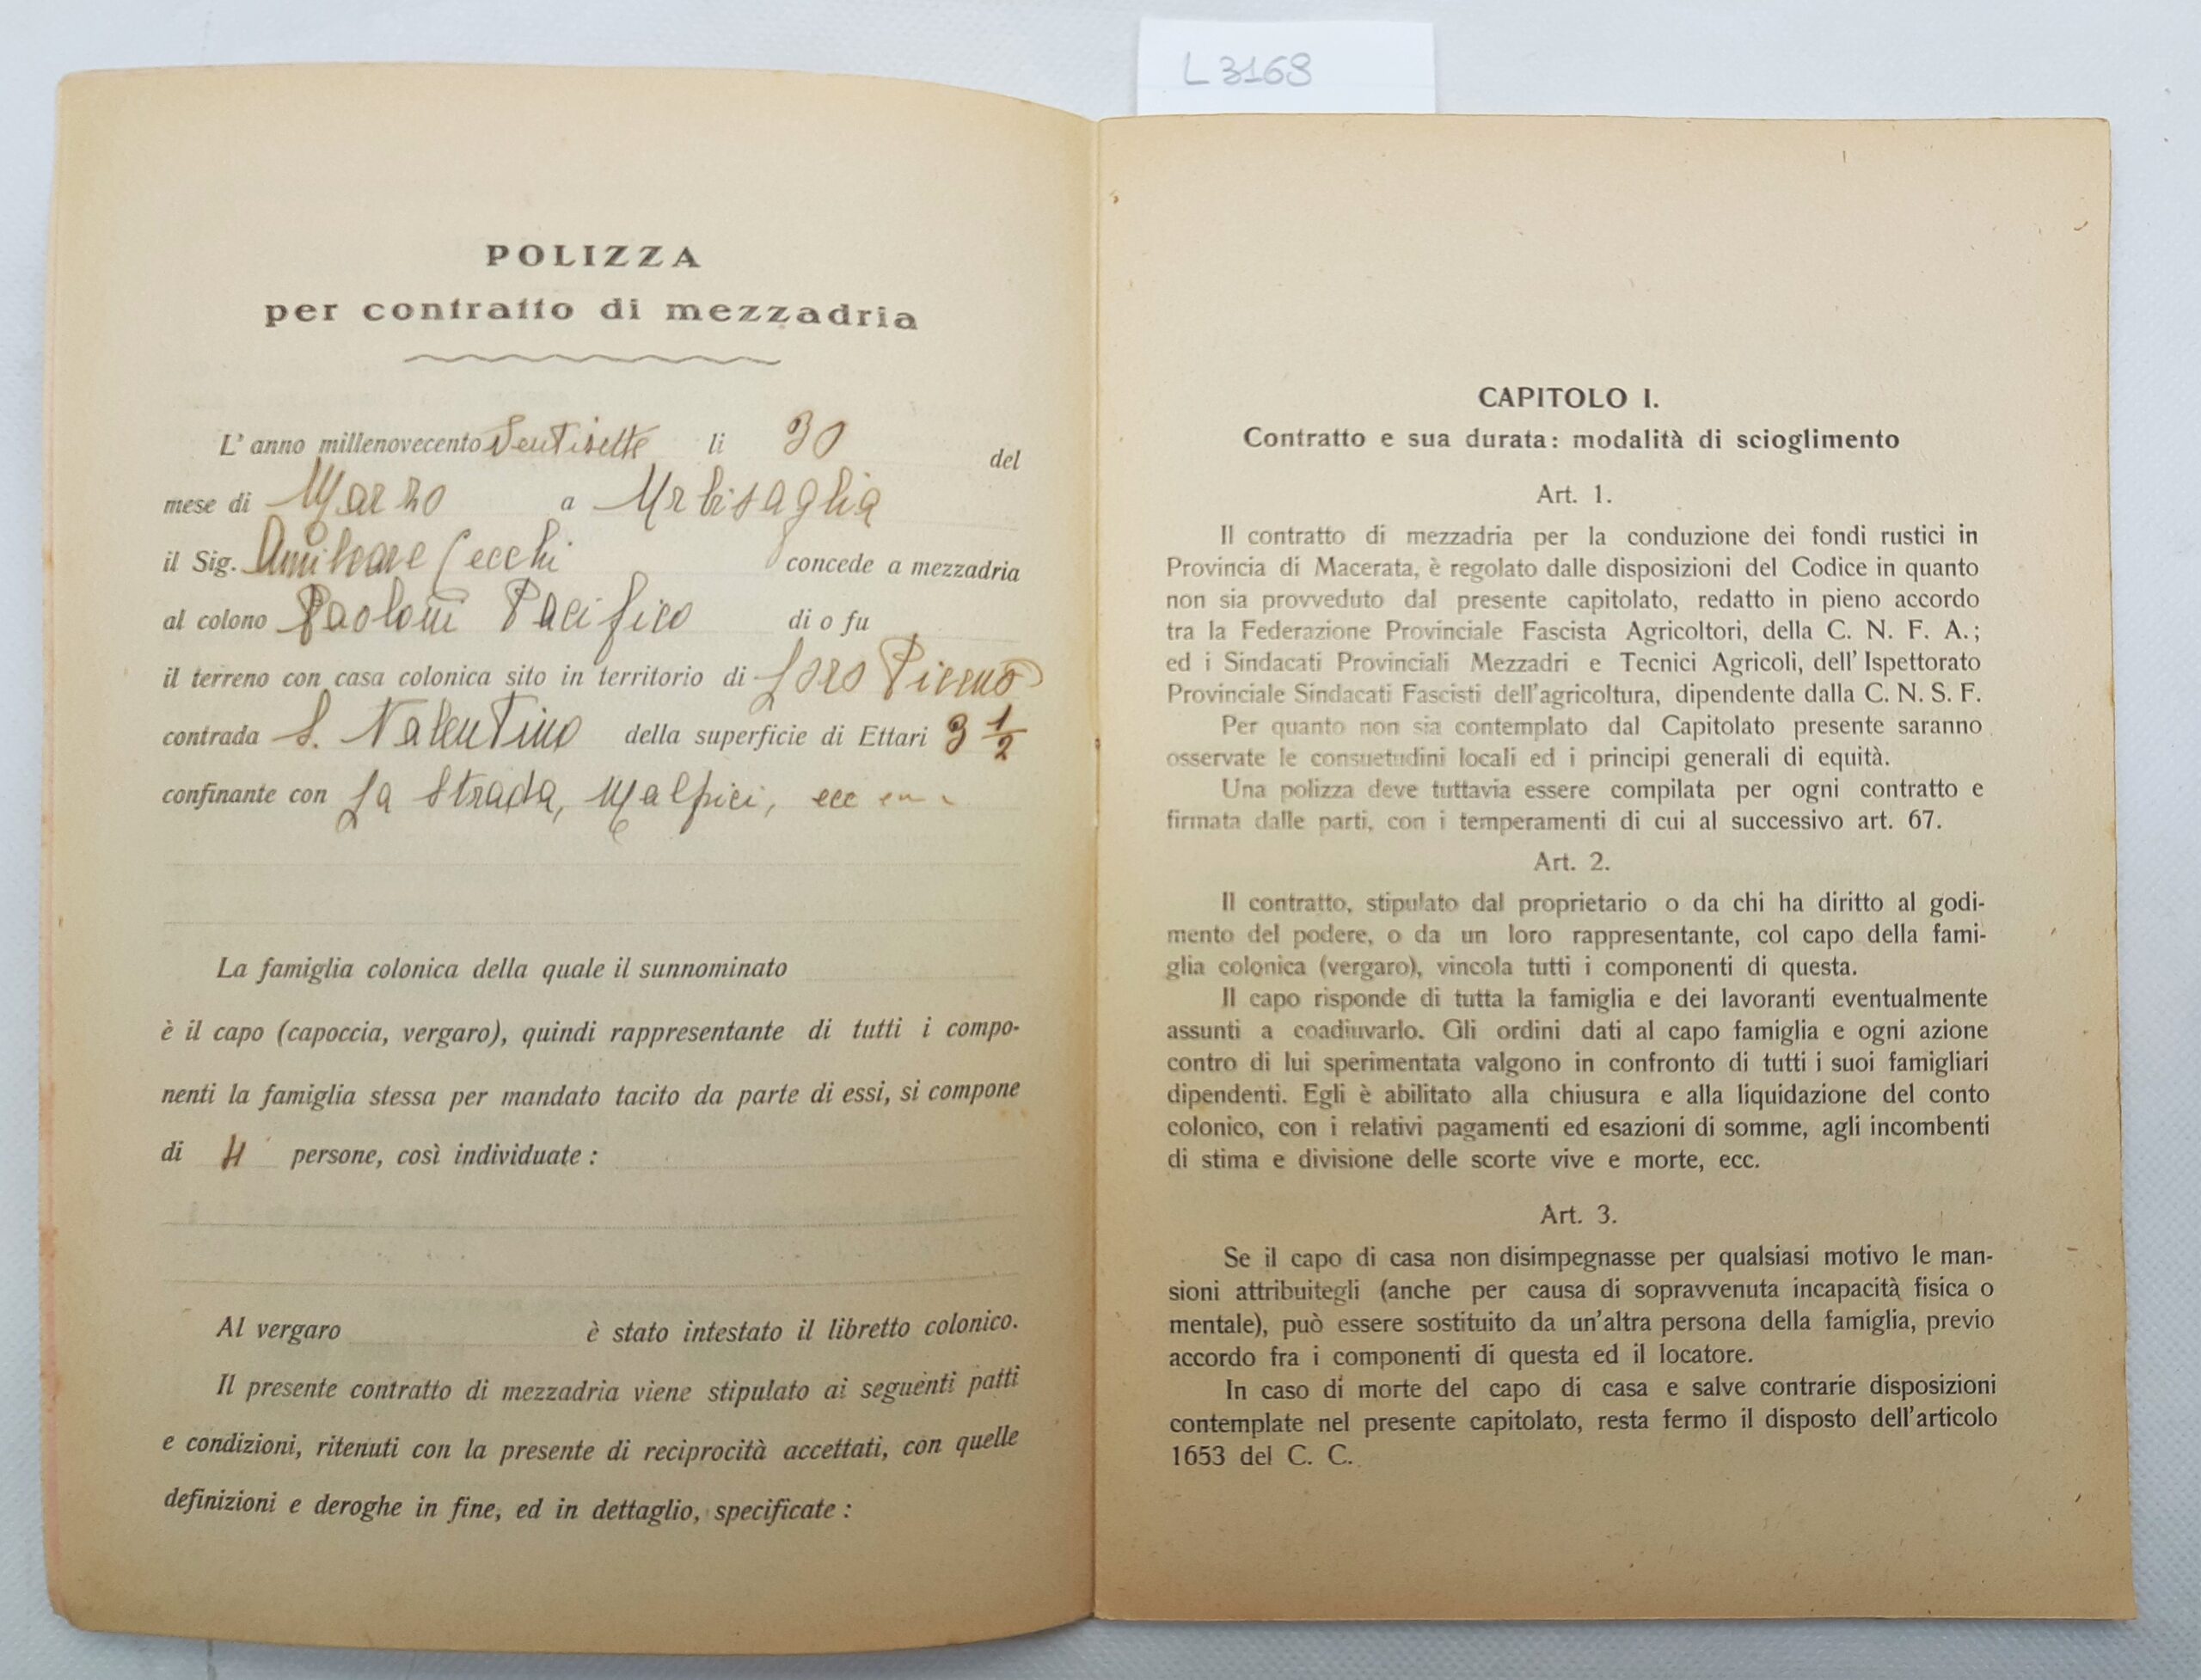 L 3168
POLIZZA
per contratto di mezzadria
L' anno millenovecento Ventisette li 30 del
mese di Marzo a Urbisaglia
il Sig. Amilcare Cecchi concede a mezzadria
al colono Paoloni Pacifico di o fu
il terreno con casa colonica sito in territorio di Loro Piceno
contrada S. Valentino della superficie di Ettari 3 1/2
confinante con la Strada, Malpiei, ecc
La famiglia colonica della quale il sunnominato
è il capo (capoccia, vergaro), quindi rappresentante di tutti i compo-
nenti la famiglia stessa per mandato tacito da parte di essi, si compone
di 4 persone, così individuate :
Al vergaro è stato intestato il libretto colonico.
Il presente contratto di mezzadria viene stipulato ai seguenti patti
e condizioni, ritenuti con la presente di reciprocità accettati, con quelle
definizioni e deroghe in fine, ed in dettaglio, specificate :
CAPITOLO I.
Contratto e sua durata: modalità di scioglimento
Art. 1.
Il contratto di mezzadria per la conduzione dei fondi rustici in
Provincia di Macerata, è regolato dalle disposizioni del Codice in quanto
non sia provveduto dal presente capitolato, redatto in pieno accordo
tra la Federazione Provinciale Fascista Agricoltori, della C. N. F. A.;
ed i Sindacati Provinciali Mezzadri e Tecnici Agricoli, dell' Ispettorato
Provinciale Sindacati Fascisti dell'agricoltura, dipendente dalla C. N. S. F.
Per quanto non sia contemplato dal Capitolato presente saranno
osservate le consuetudini locali ed i principi generali di equità.
Una polizza deve tuttavia essere compilata per ogni contratto e
firmata dalle parti, con i temperamenti di cui al successivo art. 67.
Art. 2.
Il contratto, stipulato dal proprietario o da chi ha diritto al godi-
mento del podere, o da un loro rappresentante, col capo della fami-
glia colonica (vergaro), vincola tutti i componenti di questa.
Il capo risponde di tutta la famiglia e dei lavoranti eventualmente
assunti a coadiuvarlo. Gli ordini dati al capo famiglia e ogni azione
contro di lui sperimentata valgono in confronto di tutti i suoi famigliari
dipendenti. Egli è abilitato alla chiusura e alla liquidazione del conto
colonico, con i relativi pagamenti ed esazioni di somme, agli incombenti
di stima e divisione delle scorte vive e morte, ecc.
Art. 3.
Se il capo di casa non disimpegnasse per qualsiasi motivo le man-
sioni attribuitegli (anche per causa di sopravvenuta incapacità fisica o
mentale), può essere sostituito da un'altra persona della famiglia, previo
accordo fra i componenti di questa ed il locatore.
In caso di morte del capo di casa e salve contrarie disposizioni
contemplate nel presente capitolato, resta fermo il disposto dell'articolo
1653 del C. C.